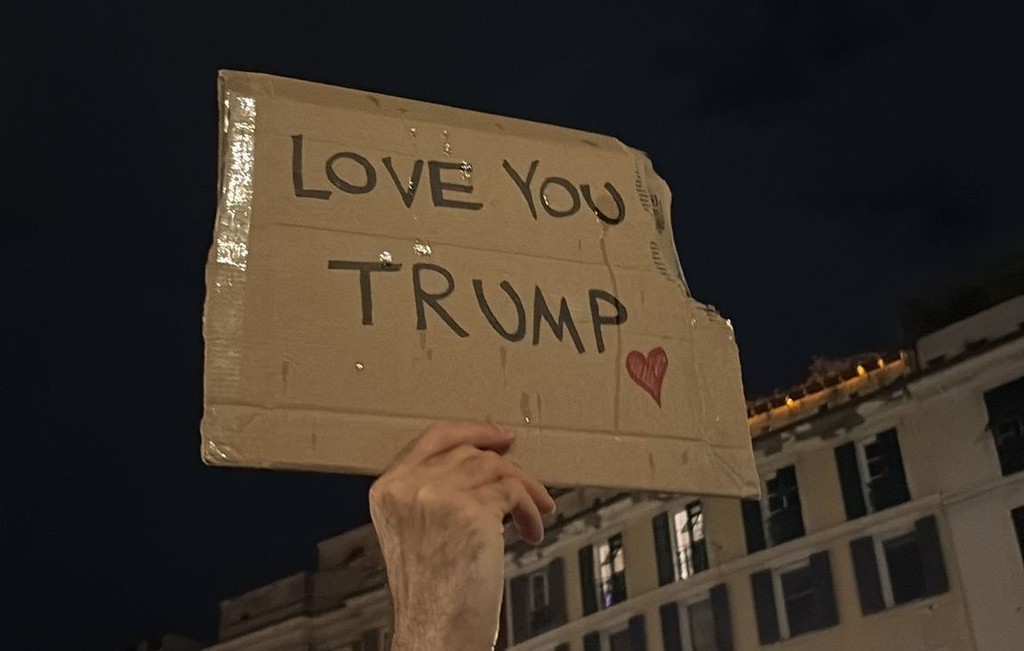 LOVE YOU
TRUMP